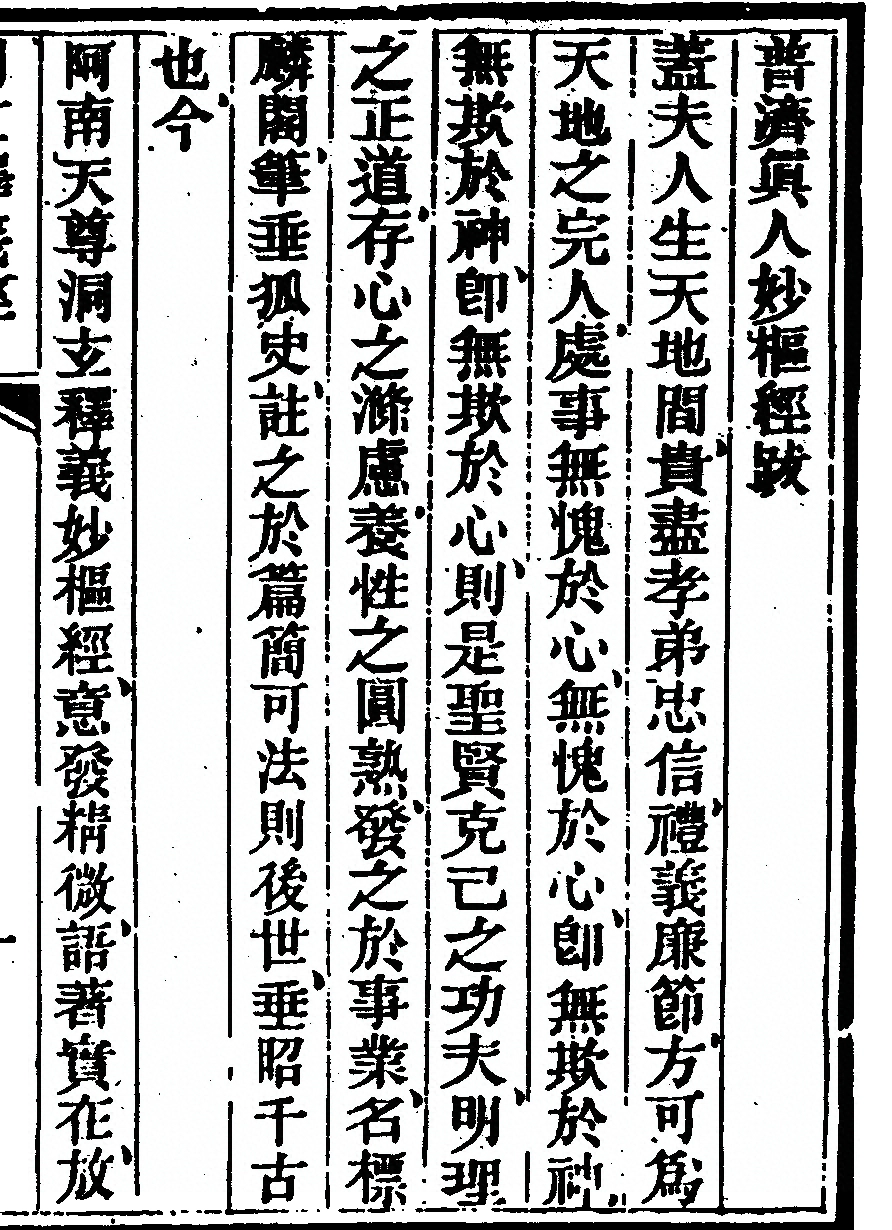 普濟眞人妙樞經跋
蓋夫人生天地間貴盡孝弟忠信禮義廉節方可爲
天地之完人處事無愧於心無愧於心卽無欺於神
無欺於神卽無欺於心則是聖賢克己之功夫明理
之正道存心之滌慮養性之圓熟發之於事業名標
麟閣筆垂狐史註之於篇簡可法則後世垂昭千古
也今
阿南天尊洞玄釋義妙樞經意發精微語著實在放